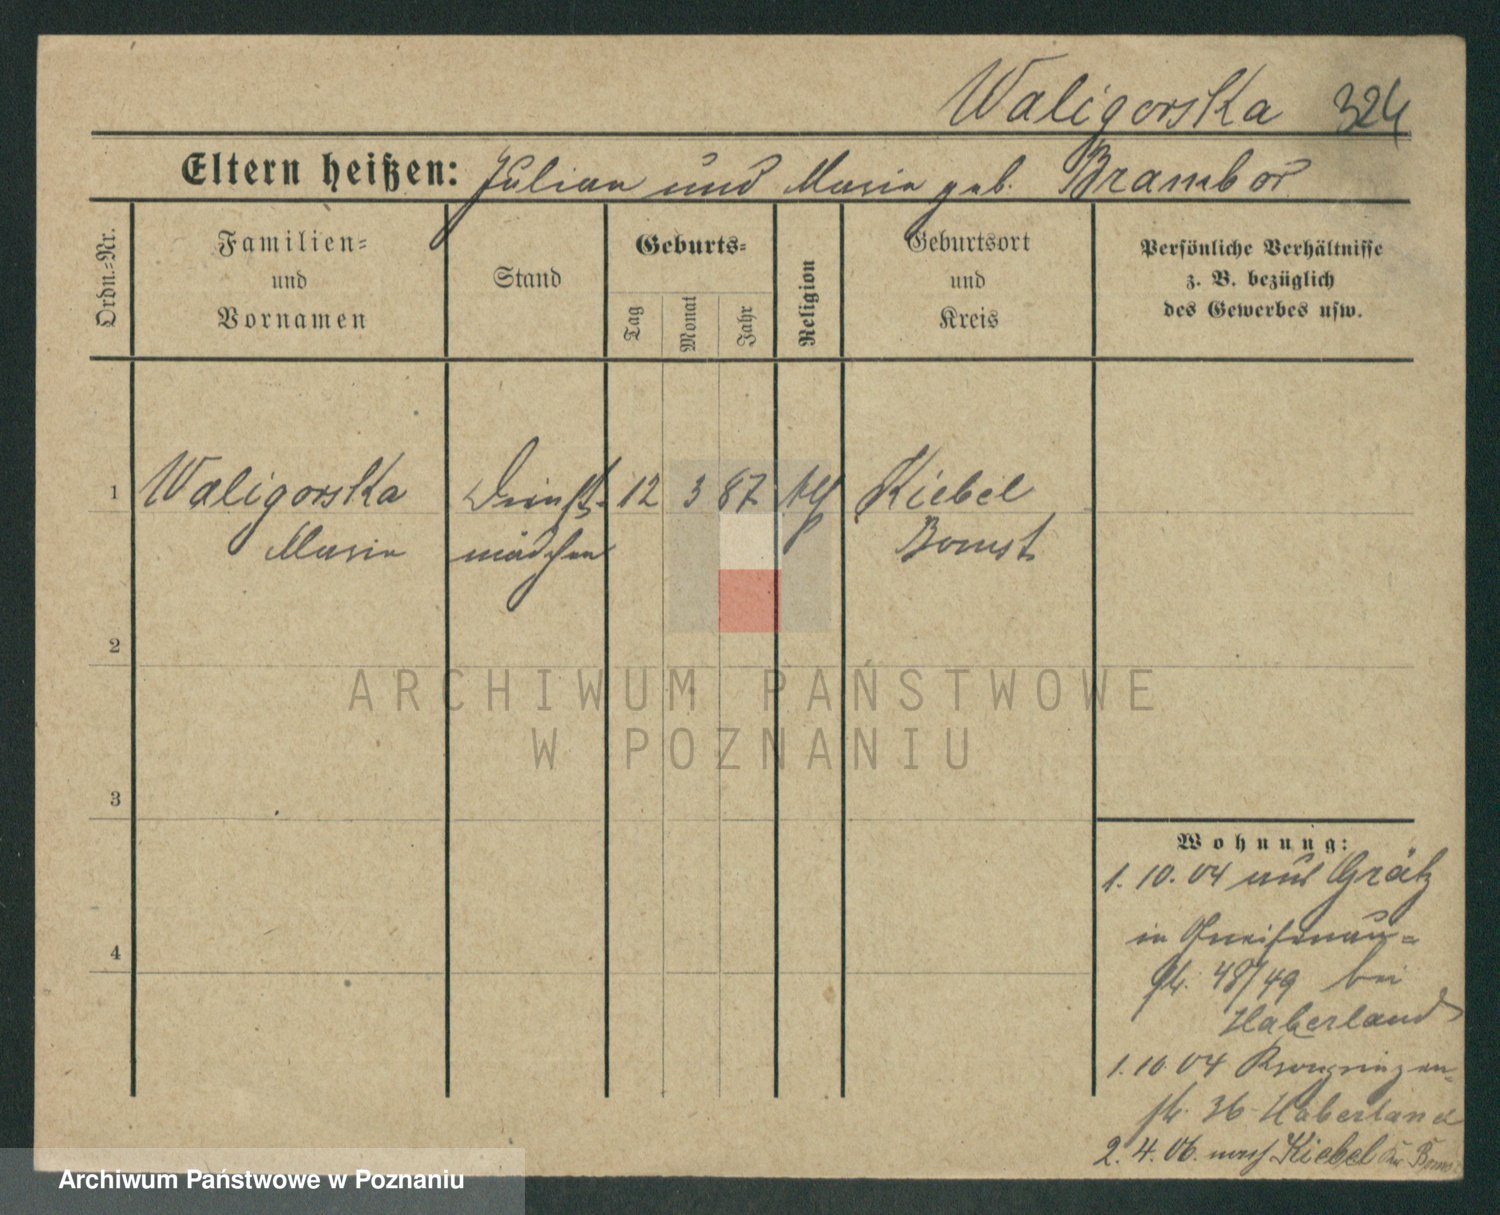 Waligorska 324
Eltern heißen: Julian und Marie geb. Brambor
Ordn.-Nr.
Familien-
und
Vornamen
Stand
Geburts-
Tag
Monat
Jahr
Religion
Geburtsort
und
Kreis
Persönliche Verhältnisse
z. B. bezüglich
des Gewerbes usw.
1 Waligorska Dienst- 12 3 87 Kiebel
Marie mädchen Bomst
2
3
4
ARCHIWUM PAŃSTWOWE
W POZNANIU
Wohnung:
1. 10. 04 aus Grätz
in Gneisenau-
str. 48/49 bei
Haberland
1. 10 04 Kronprinzen-
str. 36 Haberland
2. 4. 06. nach Kiebel Kr Bomst
Archiwum Państwowe w Poznaniu